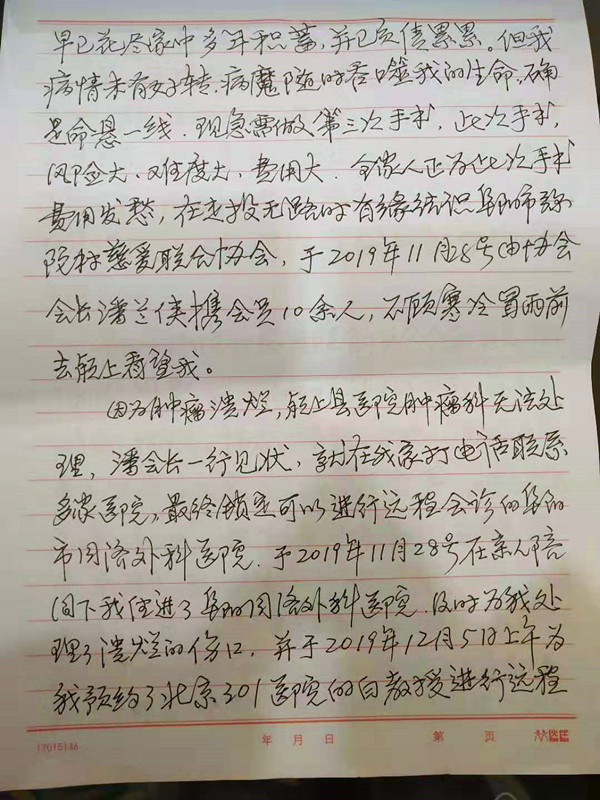 早已花尽家中多年积蓄,并已负债累累。但我
病情未有好转,病魔随时吞噬我的生命,确
是命悬一线.现急需做第三次手术,此次手术,
风险大、难度大、费用大.全家人正为此次手术
费用发愁,在走投无路时有缘结识阜阳市
慈爱联合协会,于2019年11月28号由协会
会长潘兰侠携会员10余人,不顾寒冷冒雨前
去颍上看望我。
因为肿瘤溃烂,颍上县医院肿瘤科无法处
理,潘会长一行见状,就在我家打电话联系
多家医院,最终锁定可以进行远程会诊的阜阳
市同济外科医院.于2019年11月28号在亲人陪
同下我住进了阜阳同济外科医院.及时为我处
理了溃烂的伤口,并于2019年12月5日上午为
我预约了北京301医院的白教授进行远程
17015146
年 月 日
第 页